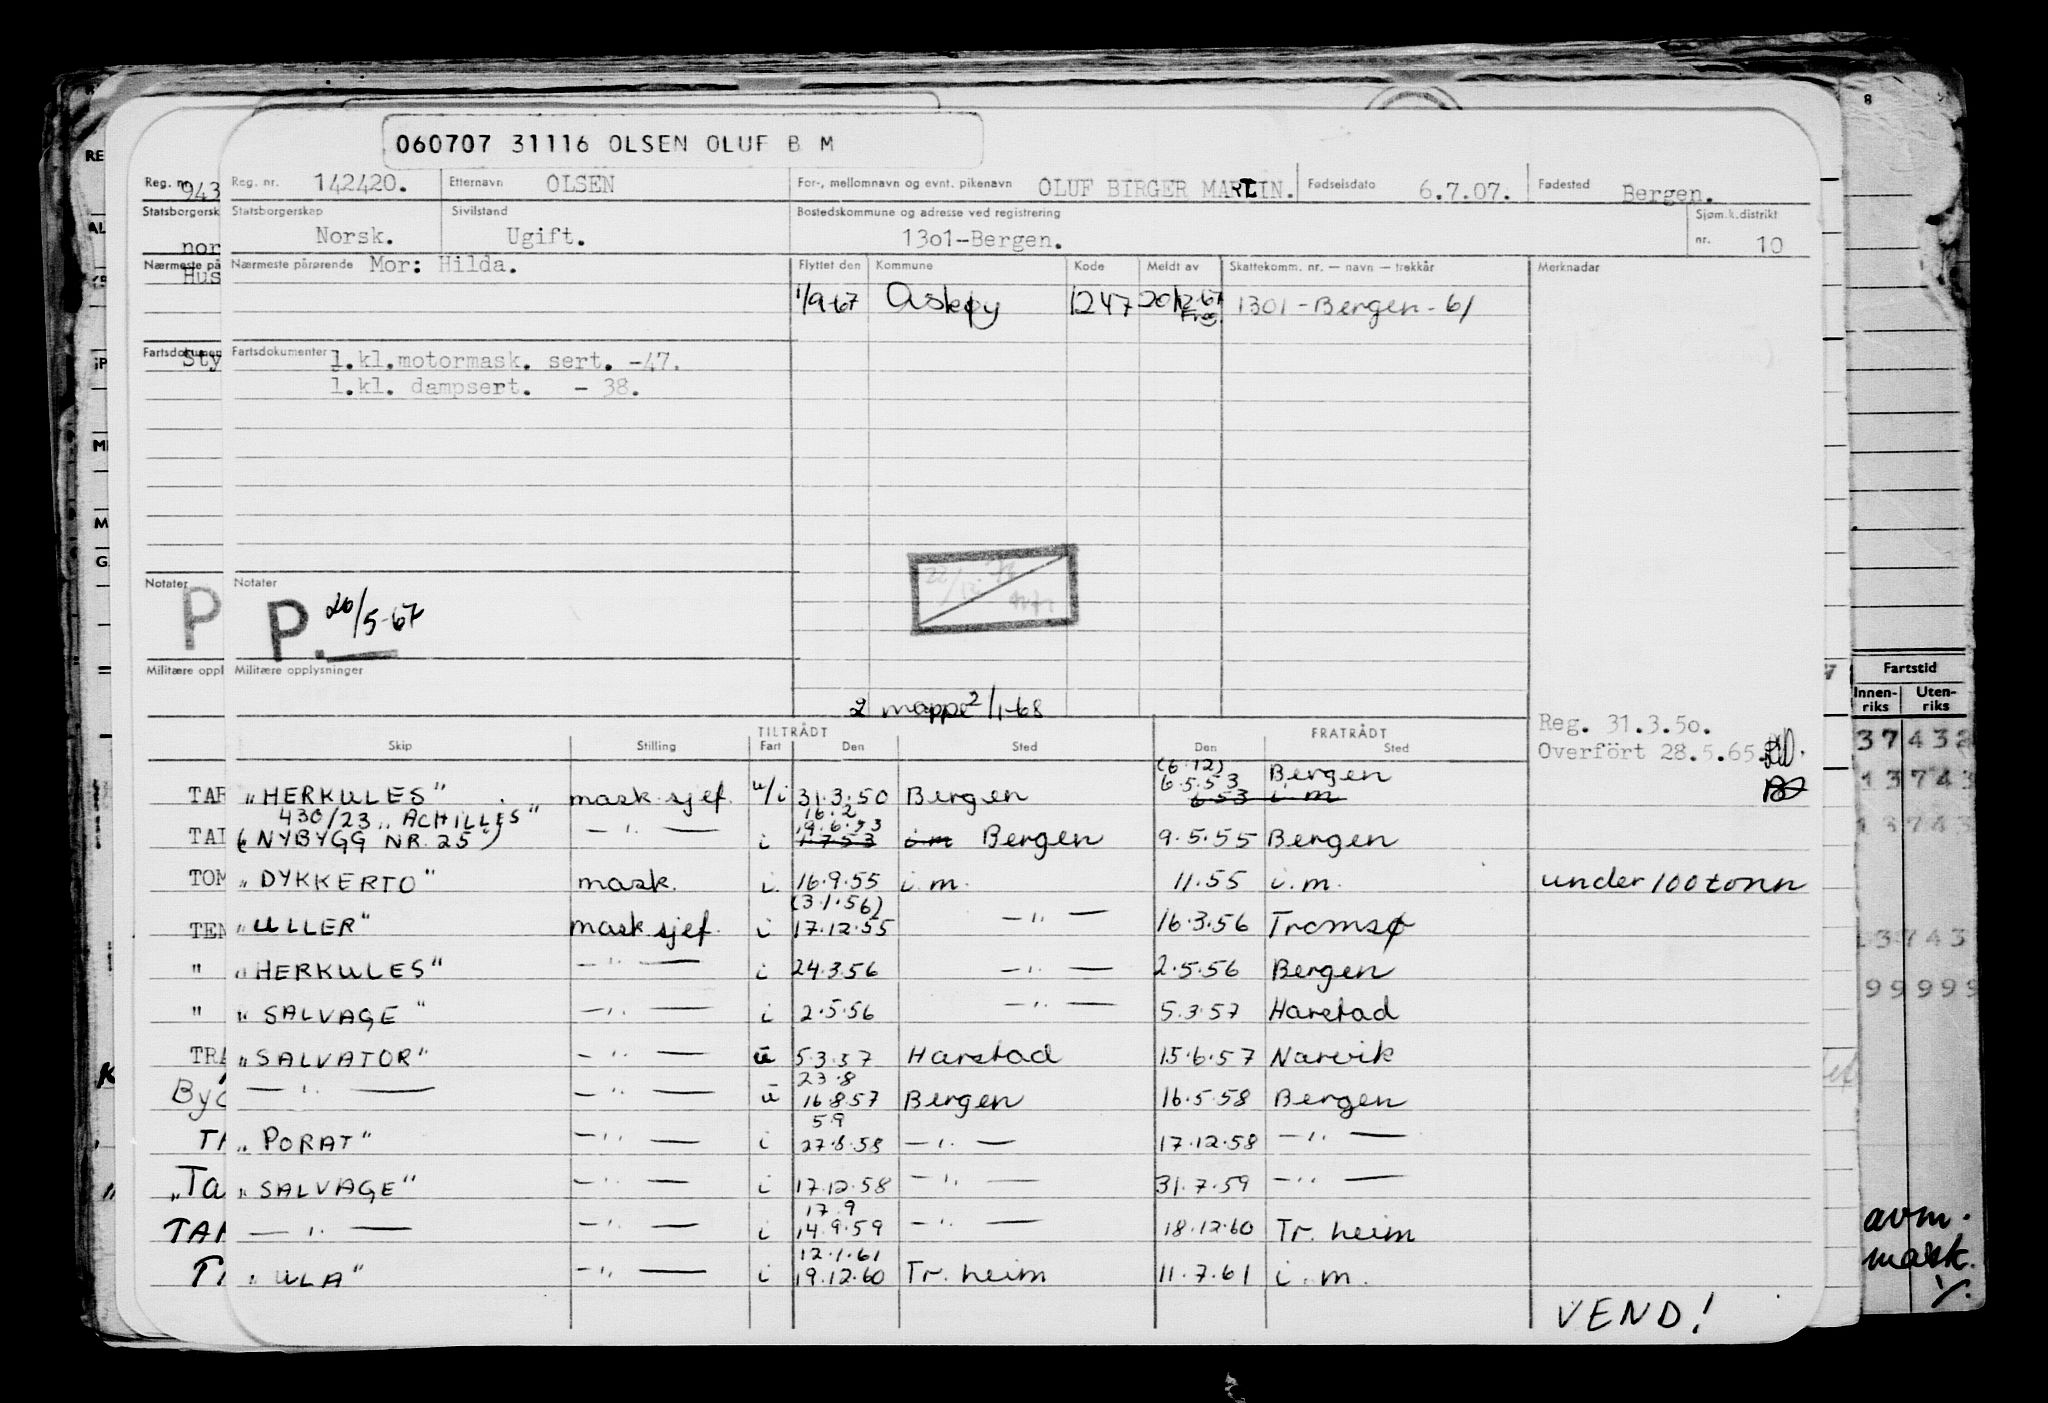 060707 31116 OLSEN OLUF B M
Reg. nr. 142420. Etternavn OLSEN For-, mellomnavn og evnt. pikenavn OLUF BIRGER MARTIN. Fødselsdato 6.7.07. Fødested Bergen.
Statsborgerskap Norsk. Sivilstand Ugift. Bostedskommune og adresse ved registrering 1301-Bergen. Sjøm.k.distrikt nr. 10
Nærmeste pårørende Mor: Hilda. Flyttet den Kommune Kode Meldt av Skattekomm. nr. — navn — trekkår Merknader
1/9-67 Askøy 1247 20/12-67 1301 - Bergen - 61
Fartsdokumenter 1.kl.motormask. sert. -47.
1.kl. dampsert. - 38.
Notater
P. 20/5-67
Militære opplysninger
2 mappe 2/1-68
TILTRÅDT FRATRÅDT Reg. 31.3.50.
Skip Stilling Fart Den Sted Den Sted Overfört 28.5.65.
"HERKULES" mask.sjef. u/i 31.3.50 Bergen (6.12) 6.5.53 Bergen
6 53 i m
430/23 "ACHILLES" 16.2
(NYBYGG NR. 25") — " — i 19.6.53 1.7.53 i m Bergen 9.5.55 Bergen
"DYKKERTO" mask. i. 16.9.55 i.m. 11.55 i.m. under 100 tonn
(3.1.56)
"ULLER" mask.sjef. i 17.12.55 — " — 16.3.56 Tromsø
"HERKULES" — " — i 24.3.56 — " — 2.5.56 Bergen
"SALVAGE" — " — i 2.5.56 — " — 5.3.57 Harstad
"SALVATOR" — " — u 5.3.57 Harstad 15.6.57 Narvik
23.8
— " — — " — u 16.8.57 Bergen 16.5.58 Bergen
5.9
"PORAT" — " — i 27.8.58 — " — 17.12.58 — " —
"SALVAGE" — " — i 17.12.58 — " — 31.7.59 — " —
17.9
— " — — " — i 14.9.59 — " — 18.12.60 Tr. heim
12.1.61
"ULA" — " — i 19.12.60 Tr. heim 11.7.61 i.m.
VEND!
Fartstid
Innen-riks Uten-riks
37 432
13 743
13743
13743
99999
avm.
mask.